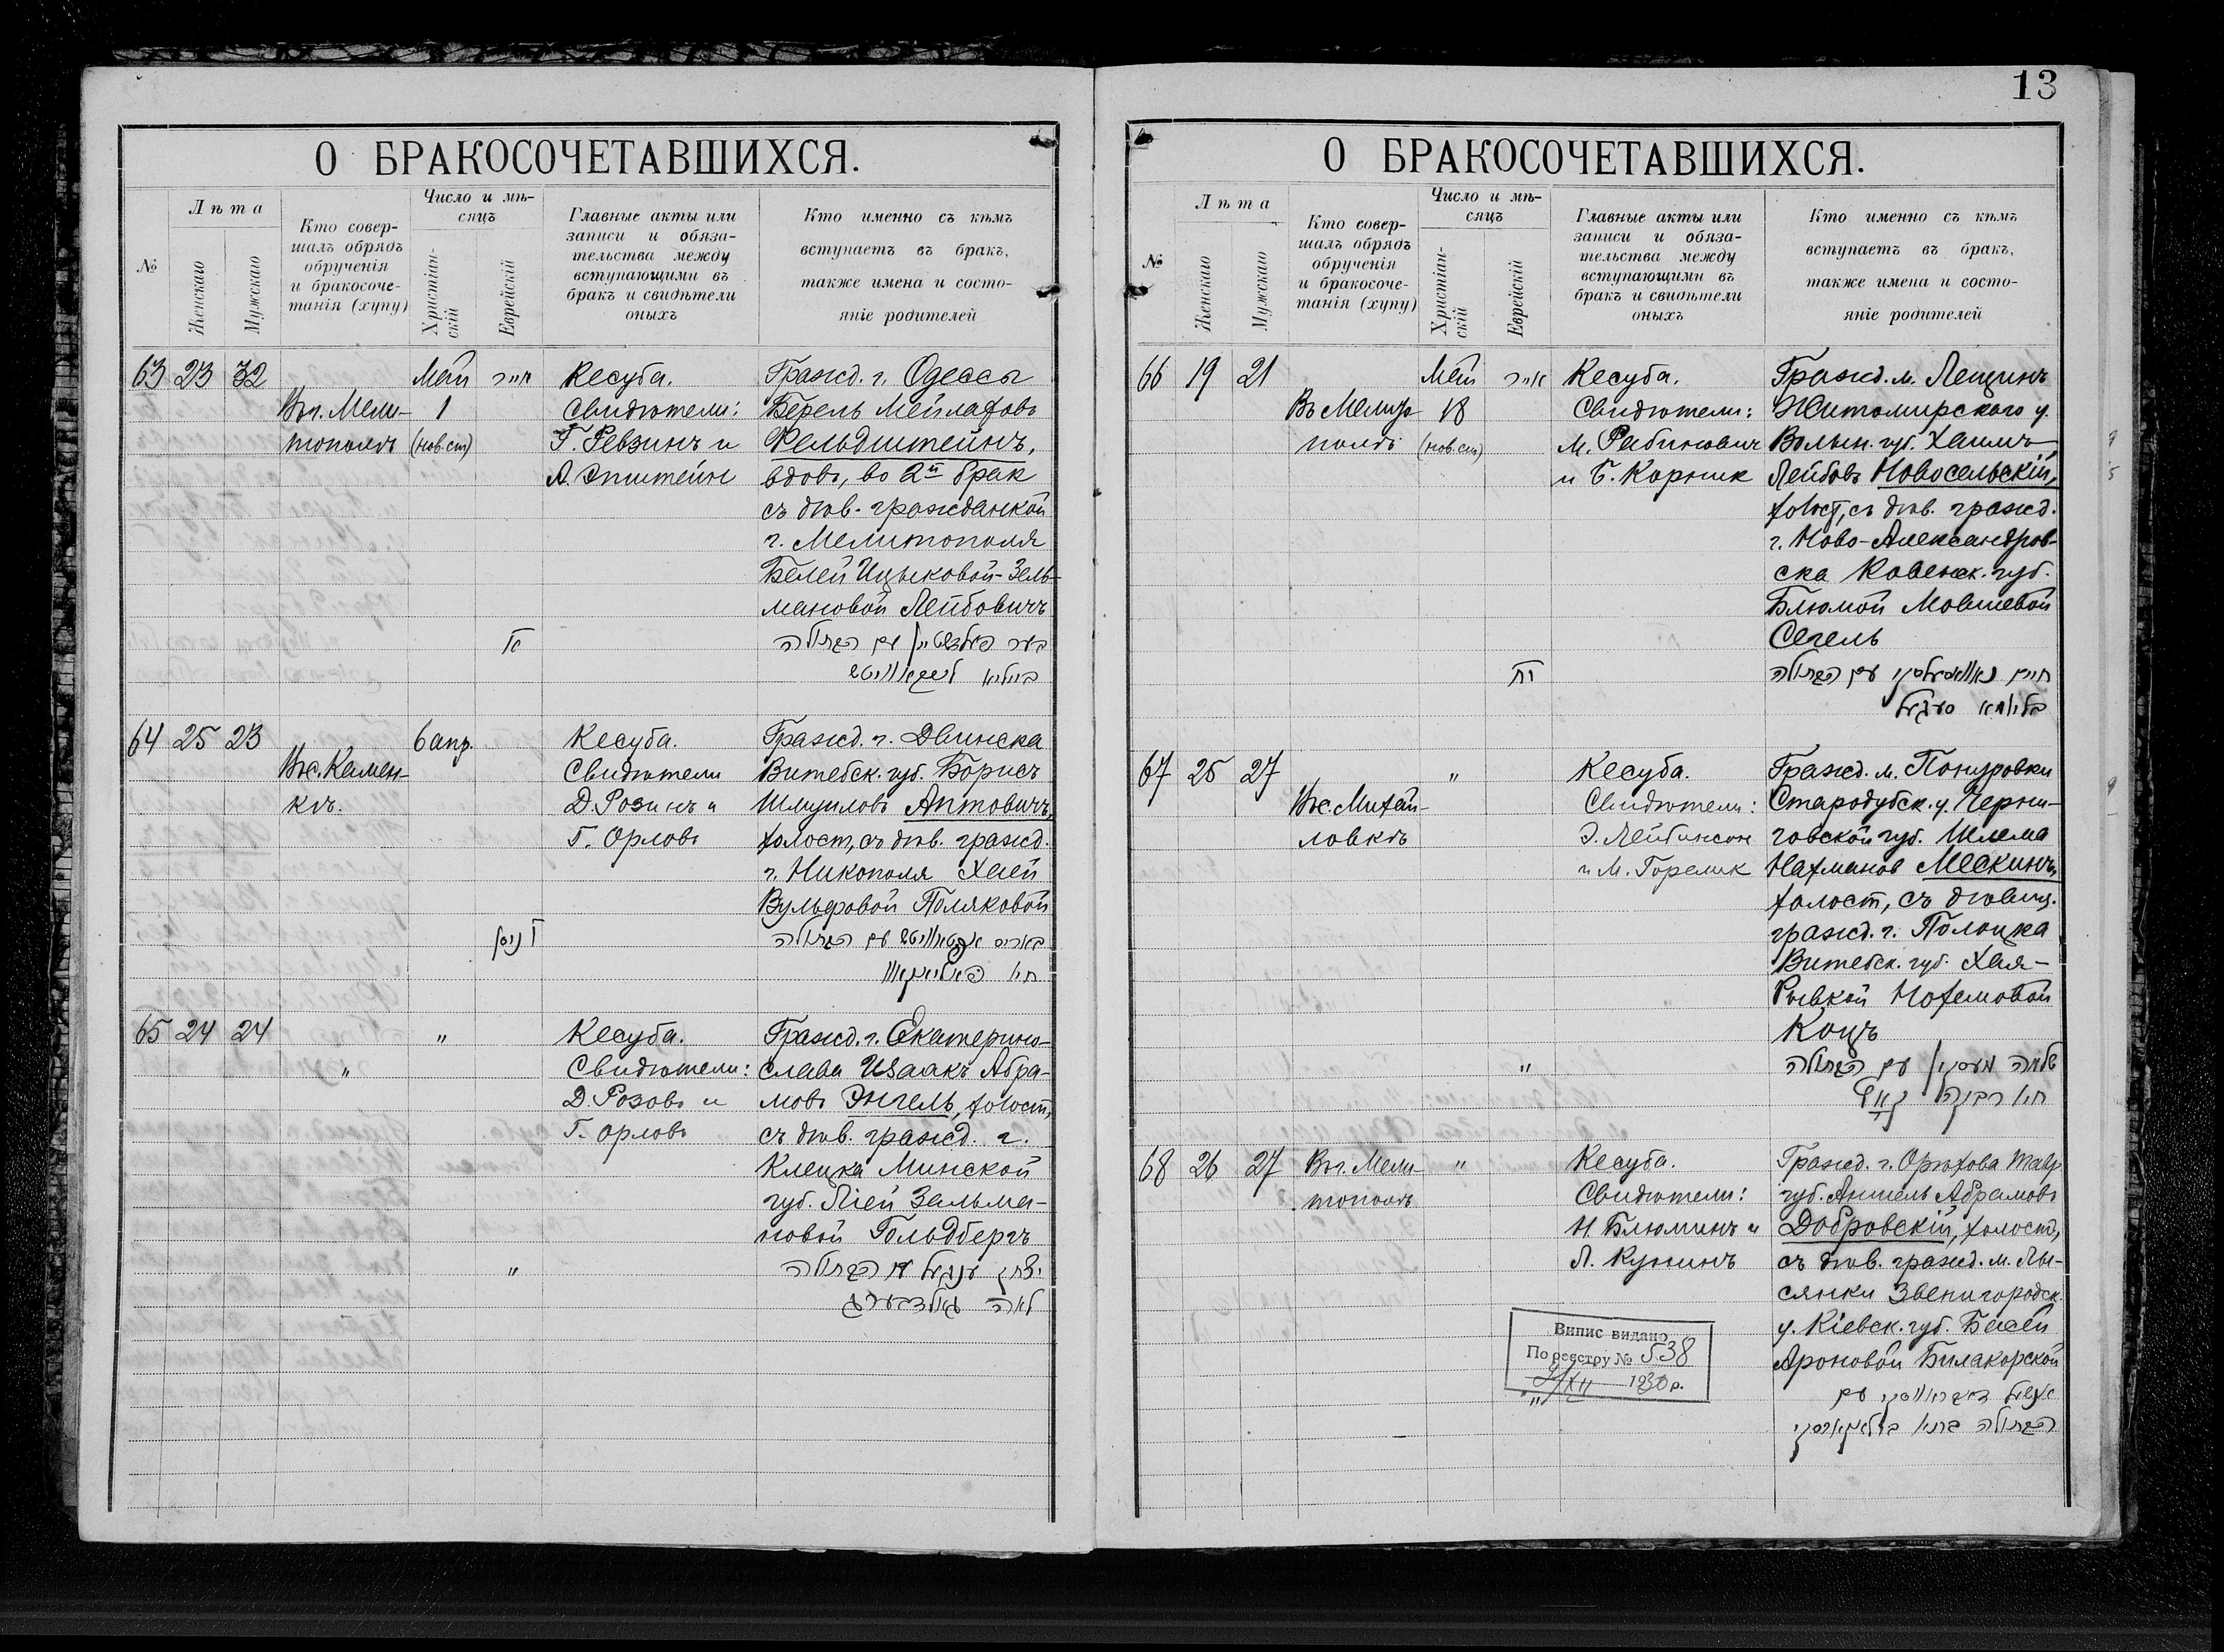 13
О БРАКОСОЧЕТАВШИХСЯ.
№
Лѣта
Женскаго
Мужскаго
Кто совер-
шалъ обрядъ
обрученія
и бракосоче-
танія (хупу)
Число и мѣ-
сяцъ
Христіан-
скій
Еврейскій
Главные акты или
записи и обяза-
тельства между
вступающими въ
бракъ и свидѣтели
оныхъ
Кто именно съ кѣмъ
вступаетъ въ бракъ,
также имена и состо-
яніе родителей
63 23 32
Въ г. Мели-
тополѣ
Май
1
(нов.ст)
אייר
Кесуба.
Свидѣтели:
Г. Ревзинъ и
А. Эпштейн
Гражд. г. Одессы
Берель Мейлаховъ
Фельдштейнъ,
вдов., во 2й брак
съ дѣв. гражданкой
г. Мелитополя
Бейлей Ицыковой-Зель-
мановой Лейбовичъ
בער פעלדשטיין עם הבתולה
ביילא לייבאוויטש
64 25 23
Въ с. Камен-
кѣ.
6 апр.
ניסן
Кесуба.
Свидѣтели
Д. Розинъ и
Г. Орловъ
Гражд. г. Двинска
Витебск. губ. Борисъ
Шмуиловъ Антовичъ,
холост, съ дѣв. гражд.
г. Никополя Хаей
Вульфовой Поляковой
באריס אנטאוויטש עם הבתולה
חיה פאליאקאוו
65 24 24
"
"
"
Кесуба.
Свидѣтели:
Д. Розовъ и
Г. Орловъ
Гражд. г. Екатерино-
слава Изаакъ Абра-
мовъ Энгель, холост,
съ дѣв. гражд. г.
Клецка Минской
губ. Ліей Зальма-
новой Гольдбергъ
יצחק ענגעל עם הבתולה
לאה גאלדבערג
О БРАКОСОЧЕТАВШИХСЯ.
№
Лѣта
Женскаго
Мужскаго
Кто совер-
шалъ обрядъ
обрученія
и бракосоче-
танія (хупу)
Число и мѣ-
сяцъ
Христіан-
скій
Еврейскій
Главные акты или
записи и обяза-
тельства между
вступающими въ
бракъ и свидѣтели
оныхъ
Кто именно съ кѣмъ
вступаетъ въ бракъ,
также имена и состо-
яніе родителей
66 19 21
Въ Мелито
полѣ
Май
18
(нов.ст)
אייר
Кесуба.
Свидѣтели:
М. Рабинович
и Б. Корник
Гражд. м. Лещинъ
Житомирского у.
Волын. губ. Хаимъ
Лейбовъ Новосельскій,
холост, съ дѣв. гражд.
г. Ново-Александров-
ска Ковенск. губ.
Блюмой Мовшевой
Сегель
חיים נאוואסעלסקי עם הבתולה
בלומא סעגאל
67 25 27
Въ с. Михай-
ловкѣ
"
"
Кесуба.
Свидѣтели:
Э. Лейбинсон
и М. Горелик
Гражд. м. Понуровки
Стародубск. у. Черни-
говской губ. Шлема
Нахманов Мескинъ,
холост, съ дѣвиц.
гражд. г. Полоцка
Витебск. губ. Хая-
Рывкой Нохемовой
Коцъ
שלמה מעסקין עם הבתולה
חיה רבקה קאץ
68 26 27
Въ г. Мели-
тополѣ
"
Кесуба.
Свидѣтели:
Н. Блюминъ и
Л. Кунинъ
Гражд. г. Орѣхова Тавр.
губ. Аншель Абрамовъ
Добровскій, холост,
съ дѣв. гражд. м. Лы-
сянки Звенигородск.
у. Кіевск. губ. Басей
Ароновой Билакорской
אנשל דאבראווסקי עם
הבתולה בתיה בילאקארסקי
Випис видано
По реєстру № 538
XII 1930 р.